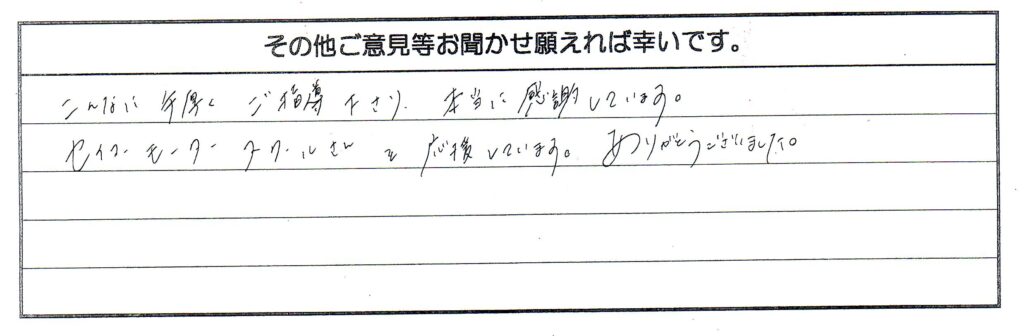 その他ご意見等お聞かせ願えれば幸いです。
こんなに手厚くご指導下さり、本当に感謝しています。
セイフモータースクールさんを応援しています。ありがとうございました。